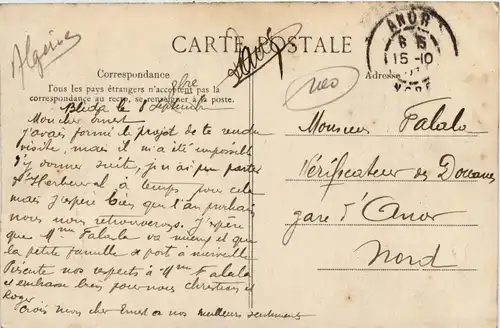 Algérie
CARTE POSTALE
ANOR
6 15
15 -10
NORD
Correspondance
Adresse
Tous les pays étrangers n'acceptent pas la
correspondance au recto, se renseigner à la poste.
Blida le 8
Mon cher Ernest
J'avais formé le projet de te rendre
visite, mais il m'a été impossible
d'y donner suite, je n'ai pu partir
d' à temps pour cela
mais j'espère bien que l'an prochain
nous nous retrouverons. J'espère
que Mme Falala va mieux et que
la petite famille se port à merveille
Présente nos respects à Mme Falala
et embrasse bien pour nous Christian et
Roger
Crois mon cher Ernest à nos meilleurs sentiments
Monsieur Falala
Vérificateur des Douanes
gare d'Anor
Nord